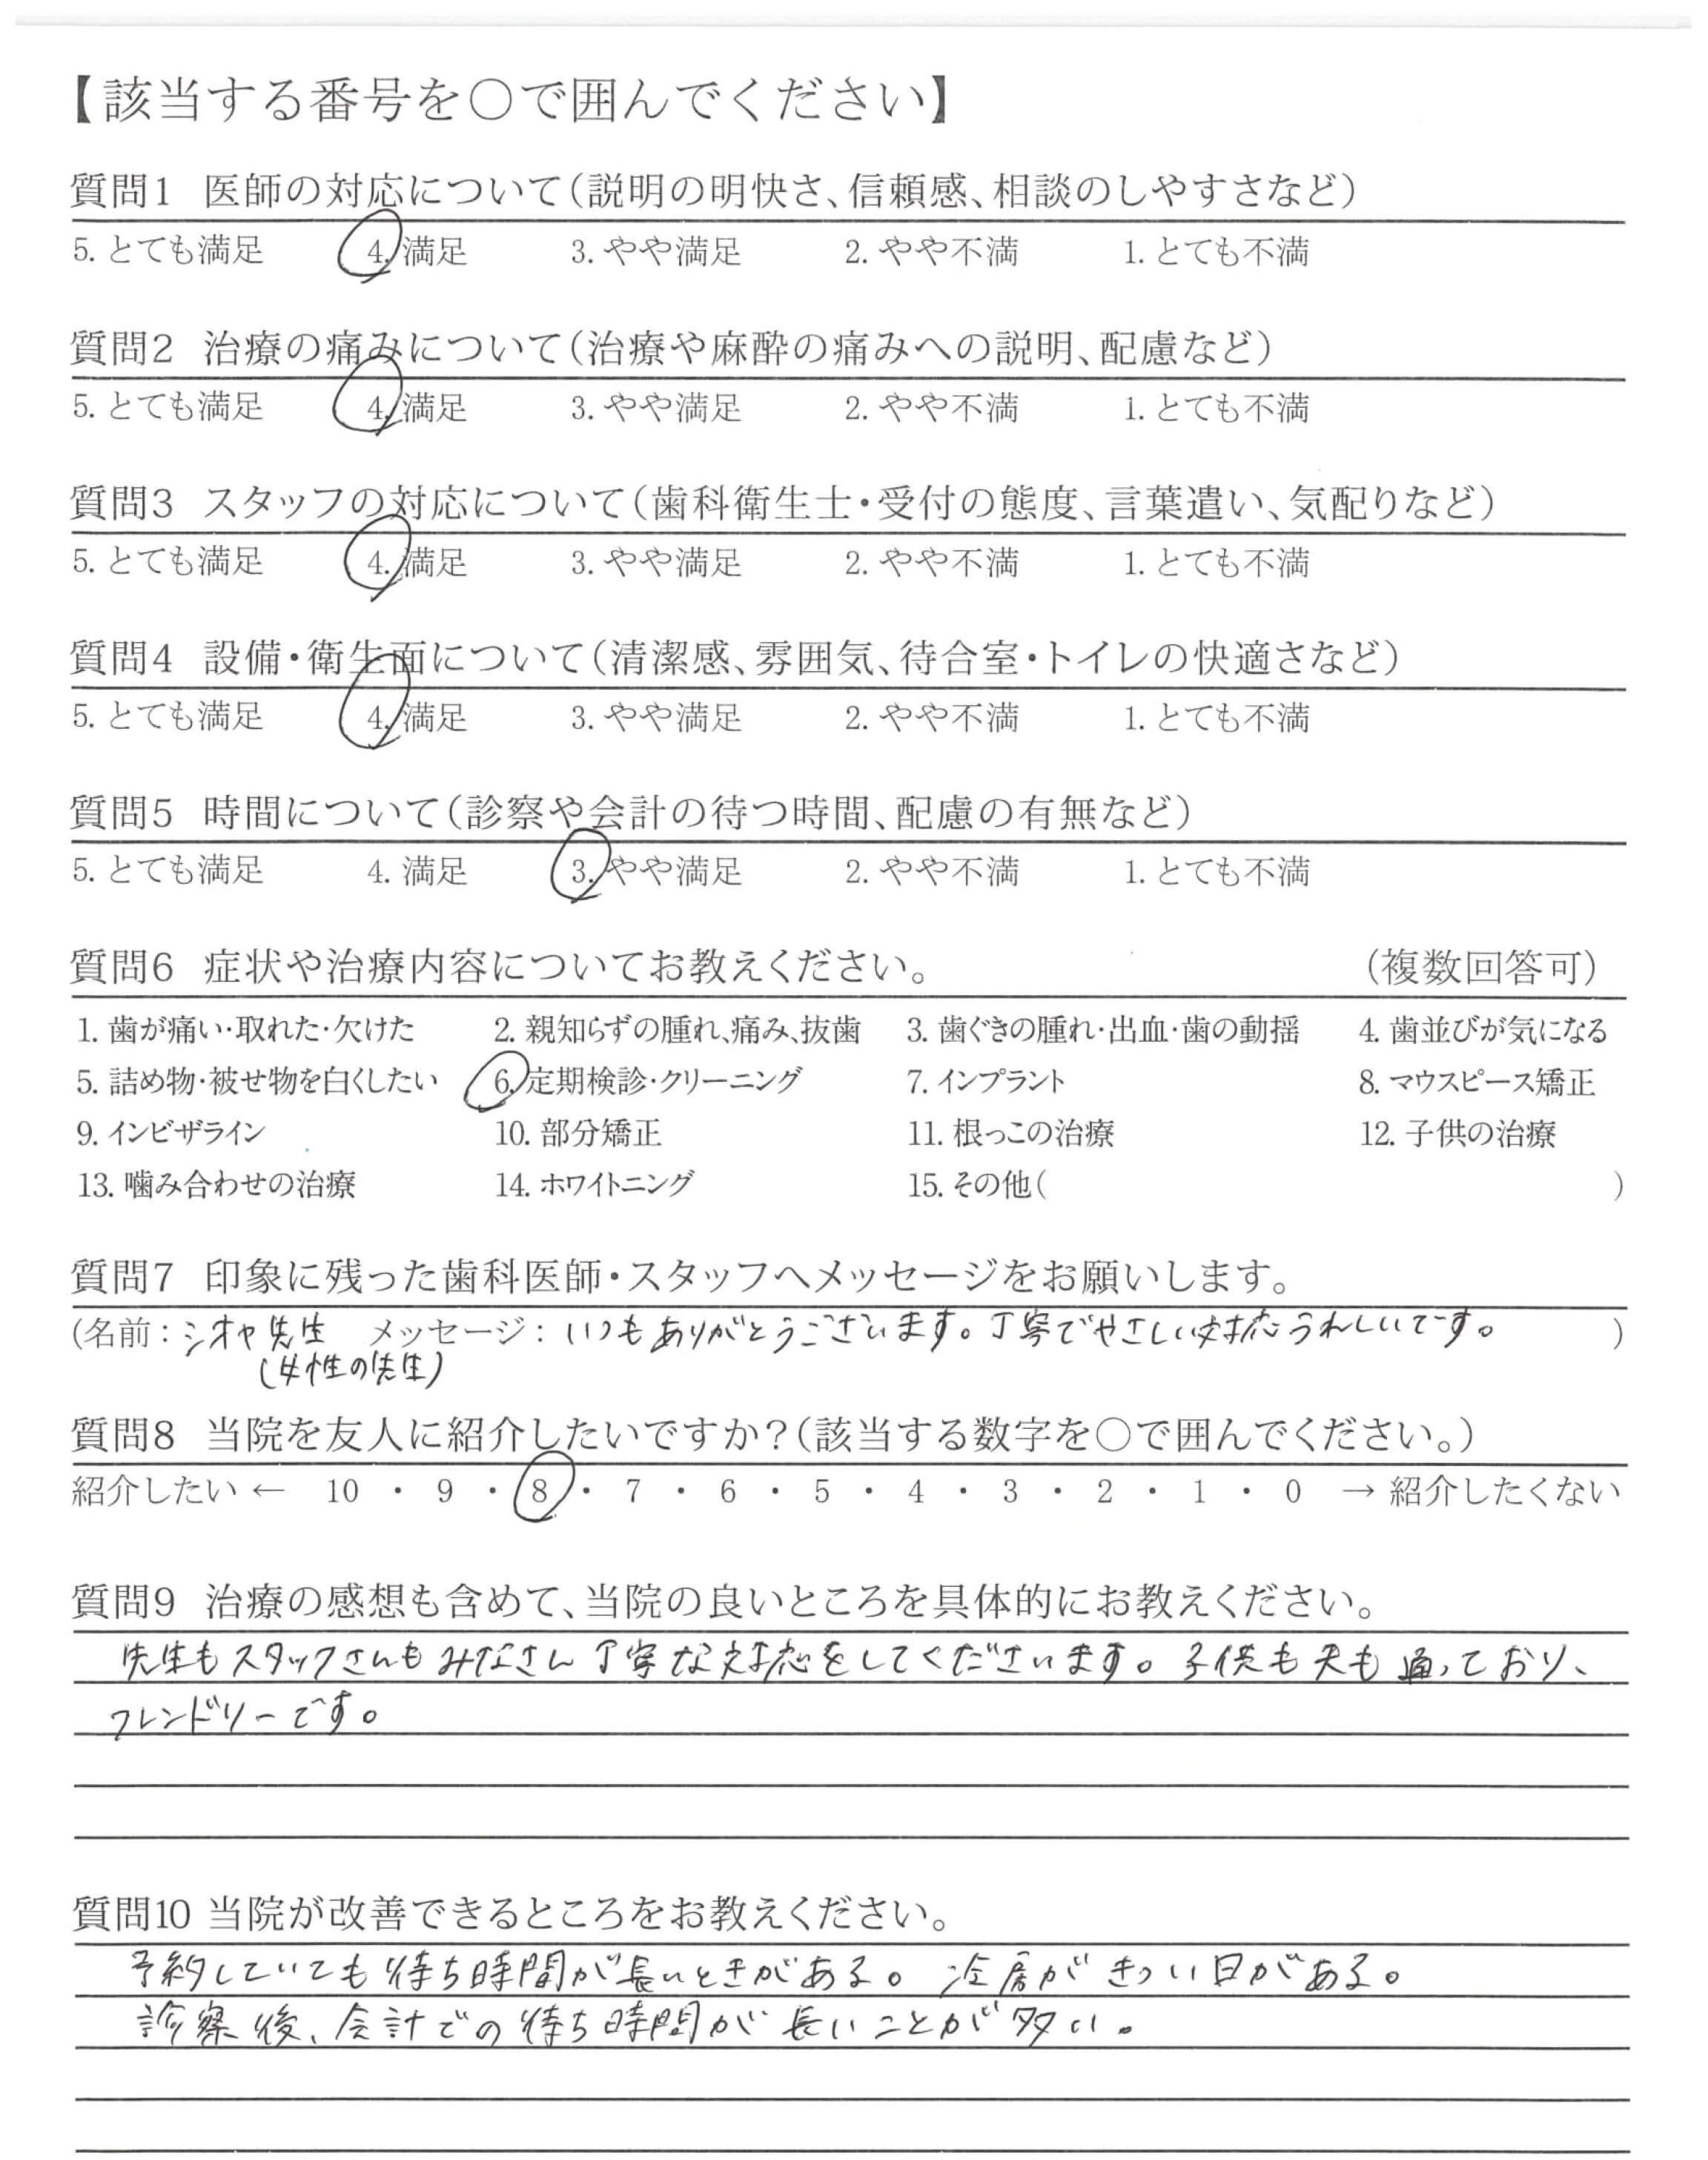 【該当する番号を○で囲んでください】
質問1 医師の対応について(説明の明快さ、信頼感、相談のしやすさなど)
5. とても満足 4. 満足 3. やや満足 2. やや不満 1. とても不満
質問2 治療の痛みについて(治療や麻酔の痛みへの説明、配慮など)
5. とても満足 4. 満足 3. やや満足 2. やや不満 1. とても不満
質問3 スタッフの対応について(歯科衛生士・受付の態度、言葉遣い、気配りなど)
5. とても満足 4. 満足 3. やや満足 2. やや不満 1. とても不満
質問4 設備・衛生面について(清潔感、雰囲気、待合室・トイレの快適さなど)
5. とても満足 4. 満足 3. やや満足 2. やや不満 1. とても不満
質問5 時間について(診察や会計の待つ時間、配慮の有無など)
5. とても満足 4. 満足 3. やや満足 2. やや不満 1. とても不満
質問6 症状や治療内容についてお教えください。 (複数回答可)
1. 歯が痛い・取れた・欠けた 2. 親知らずの腫れ、痛み、抜歯 3. 歯ぐきの腫れ・出血・歯の動揺 4. 歯並びが気になる
5. 詰め物・被せ物を白くしたい 6. 定期検診・クリーニング 7. インプラント 8. マウスピース矯正
9. インビザライン 10. 部分矯正 11. 根っこの治療 12. 子供の治療
13. 噛み合わせの治療 14. ホワイトニング 15. その他( )
質問7 印象に残った歯科医師・スタッフへメッセージをお願いします。
(名前：シオヤ先生 メッセージ：いつもありがとうございます。丁寧でやさしい対応うれしいです。 )
(女性の先生)
質問8 当院を友人に紹介したいですか？(該当する数字を○で囲んでください。)
紹介したい ← 10 ・ 9 ・ 8 ・ 7 ・ 6 ・ 5 ・ 4 ・ 3 ・ 2 ・ 1 ・ 0 → 紹介したくない
質問9 治療の感想も含めて、当院の良いところを具体的にお教えください。
先生もスタッフさんもみなさん丁寧な対応をしてくださいます。子供も夫も通っており、
フレンドリーです。
質問10 当院が改善できるところをお教えください。
予約していても待ち時間が長いときがある。冷房がきつい日がある。
診察後、会計での待ち時間が長いことが多い。